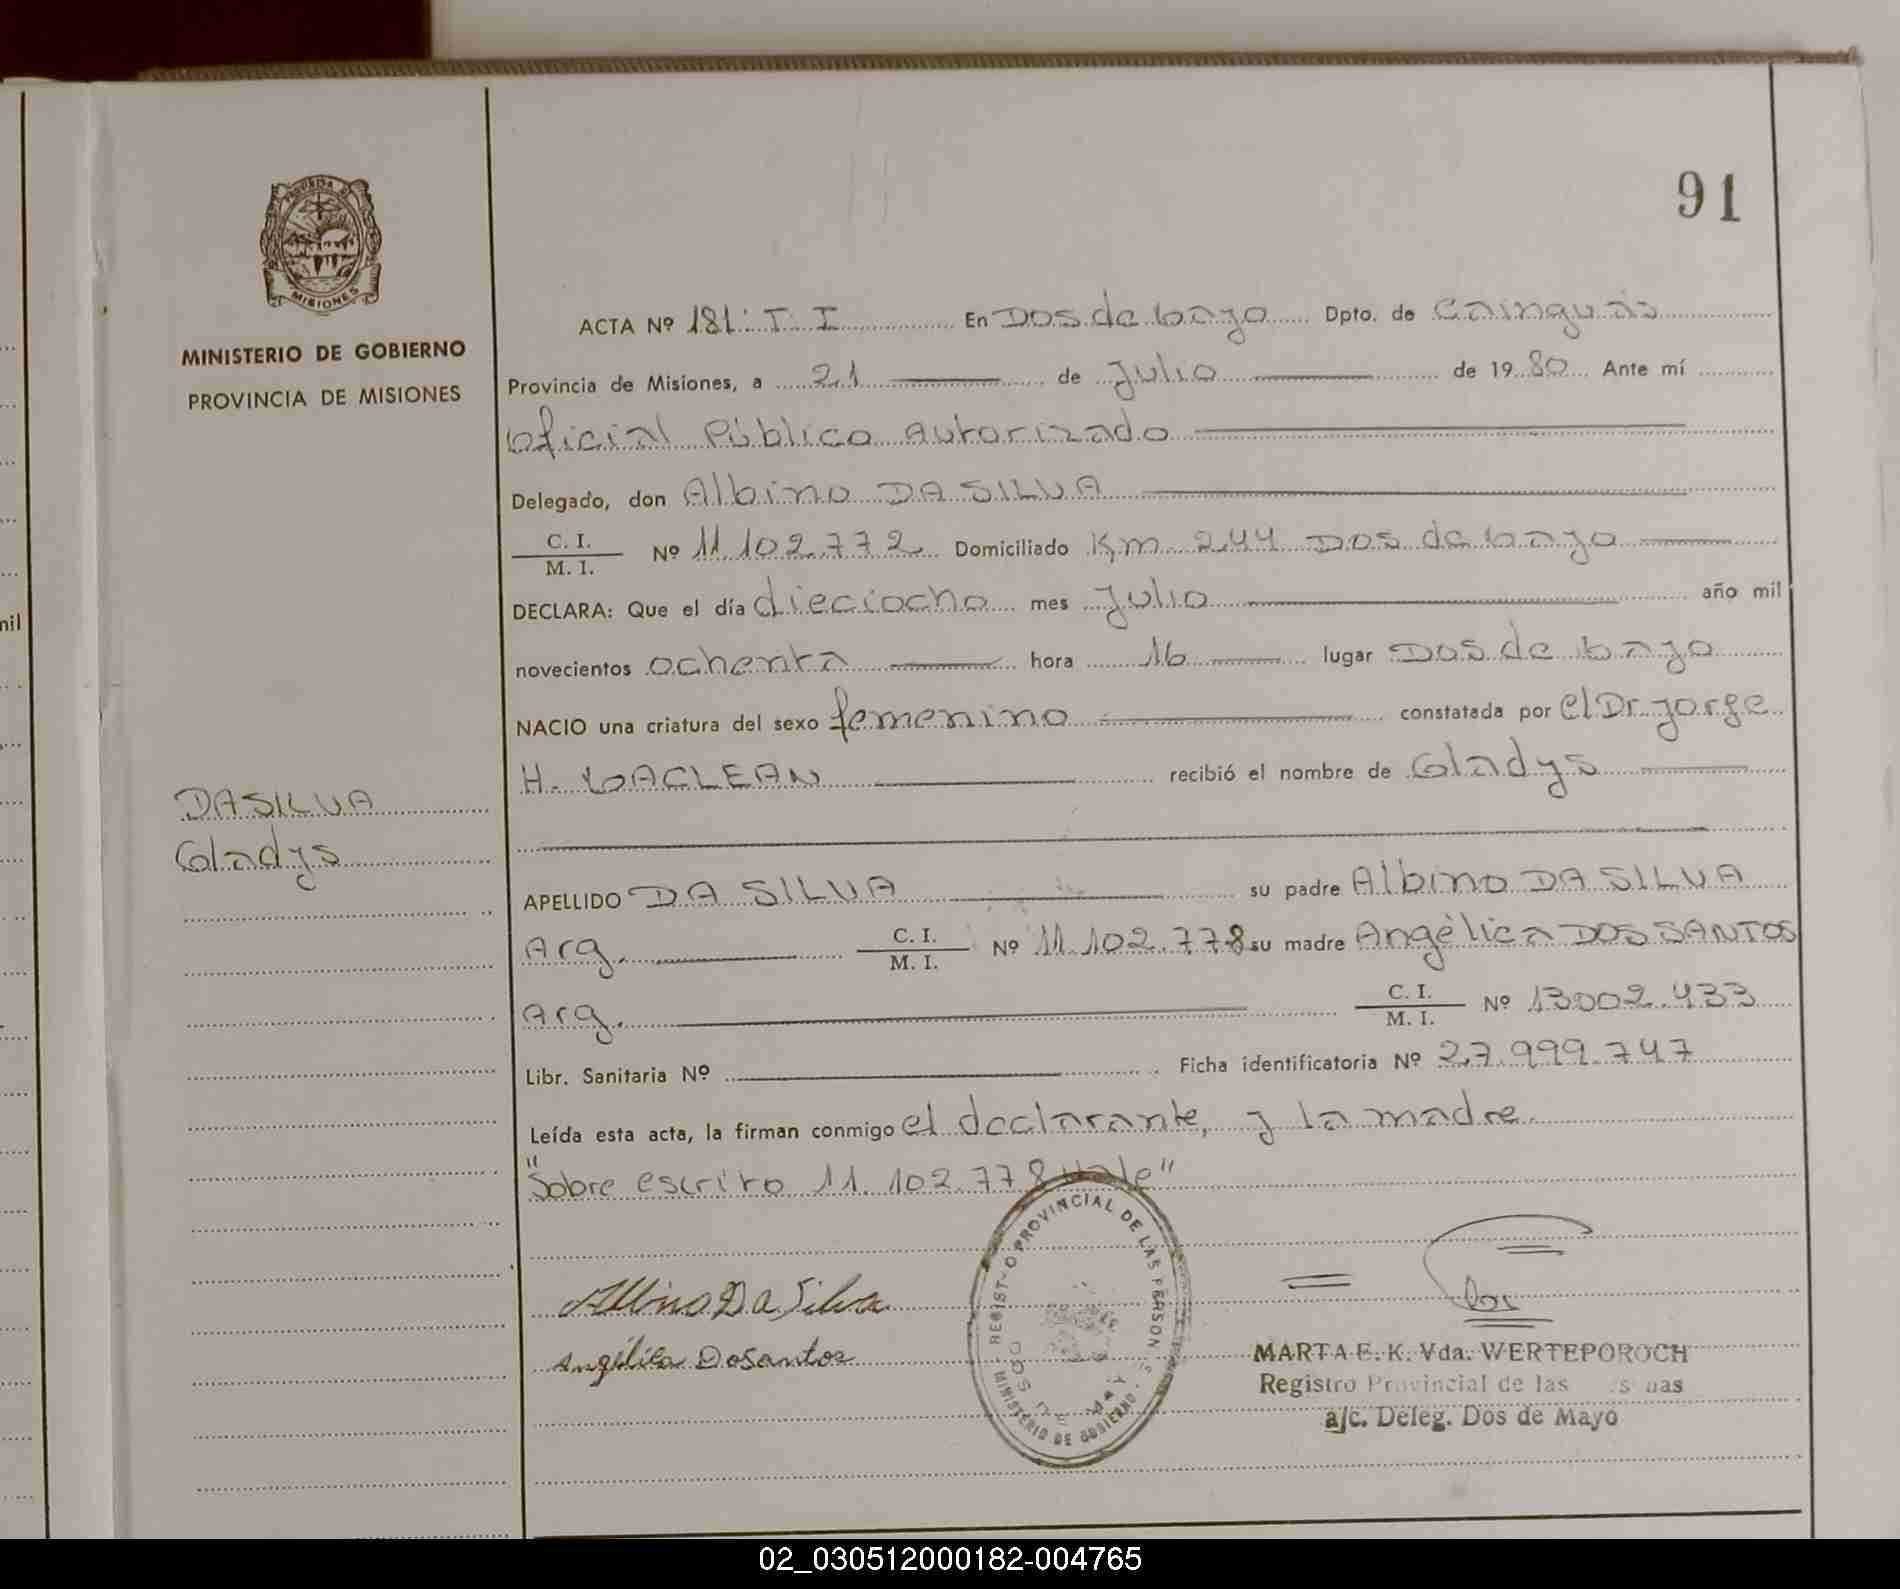 91
PROVINCIA DE
MISIONES
MINISTERIO DE GOBIERNO
PROVINCIA DE MISIONES
DA SILVA
Gladys
ACTA Nº 181: T: I En Dos de Mayo Dpto. de Cainguás
Provincia de Misiones, a 21 de Julio de 1980 Ante mí
Oficial Público Autorizado
Delegado, don Albino DA SILVA
C. I.
M. I. Nº 11.102.772 Domiciliado Km 244 Dos de Mayo
DECLARA: Que el día dieciocho mes Julio año mil
novecientos ochenta hora 16 lugar Dos de Mayo
NACIO una criatura del sexo femenino constatada por el Dr. Jorge
H. MACLEAN recibió el nombre de Gladys
APELLIDO DA SILVA su padre Albino DA SILVA
Arg. C. I.
M. I. Nº 11.102.778 su madre Angélica DOS SANTOS
Arg. C. I.
M. I. Nº 13002.433
Libr. Sanitaria Nº Ficha identificatoria Nº 27.999.747
Leída esta acta, la firman conmigo el declarante, y la madre.
"Sobre escrito 11.102.778 Vale"
Albino Da Silva
Angélica DoSantos
REGIST O PROVINCIAL DE LAS PERSON S
MINISTERIO DE GOBIERNO
MARTA E. K. Vda. WERTEPOROCH
Registro Provincial de las
a/c. Deleg. Dos de Mayo
mil
02_030512000182-004765